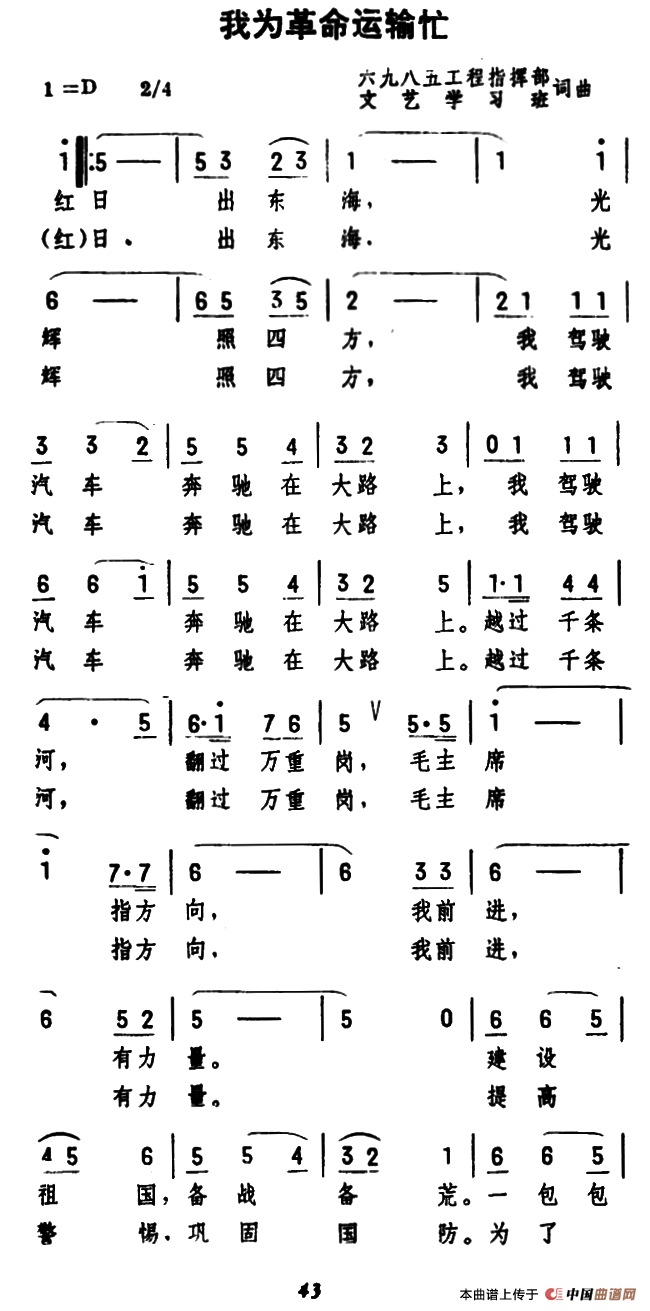 我为革命运输忙
1=D 2/4 六九八五工程指挥部
文艺学习班 词曲
i ‖: 5 — | 5 3 2 3 | 1 — | 1 i |
红日 出东海, 光
(红)日. 出东海. 光
6 — | 6 5 3 5 | 2 — | 2 1 1 1 |
辉 照四方, 我驾驶
辉 照四方, 我驾驶
3 3 2 | 5 5 4 | 3 2 3 | 0 1 1 1 |
汽车 奔驰在大路上, 我驾驶
汽车 奔驰在大路上, 我驾驶
6 6 i | 5 5 4 | 3 2 5 | 1·1 4 4 |
汽车 奔驰在大路上。越过千条
汽车 奔驰在大路上。越过千条
4 · 5 | 6·i 7 6 | 5 V 5·5 | i — |
河, 翻过万重岗, 毛主席
河, 翻过万重岗, 毛主席
i 7·7 | 6 — | 6 3 3 | 6 — |
指方向, 我前进,
指方向, 我前进,
6 5 2 | 5 — | 5 0 | 6 6 5 |
有力量。 建设
有力量。 提高
4 5 6 | 5 5 4 | 3 2 1 | 6 6 5 |
祖国, 备战备荒。一包包
警惕, 巩固国防。为了
43
本曲谱上传于 中国曲谱网